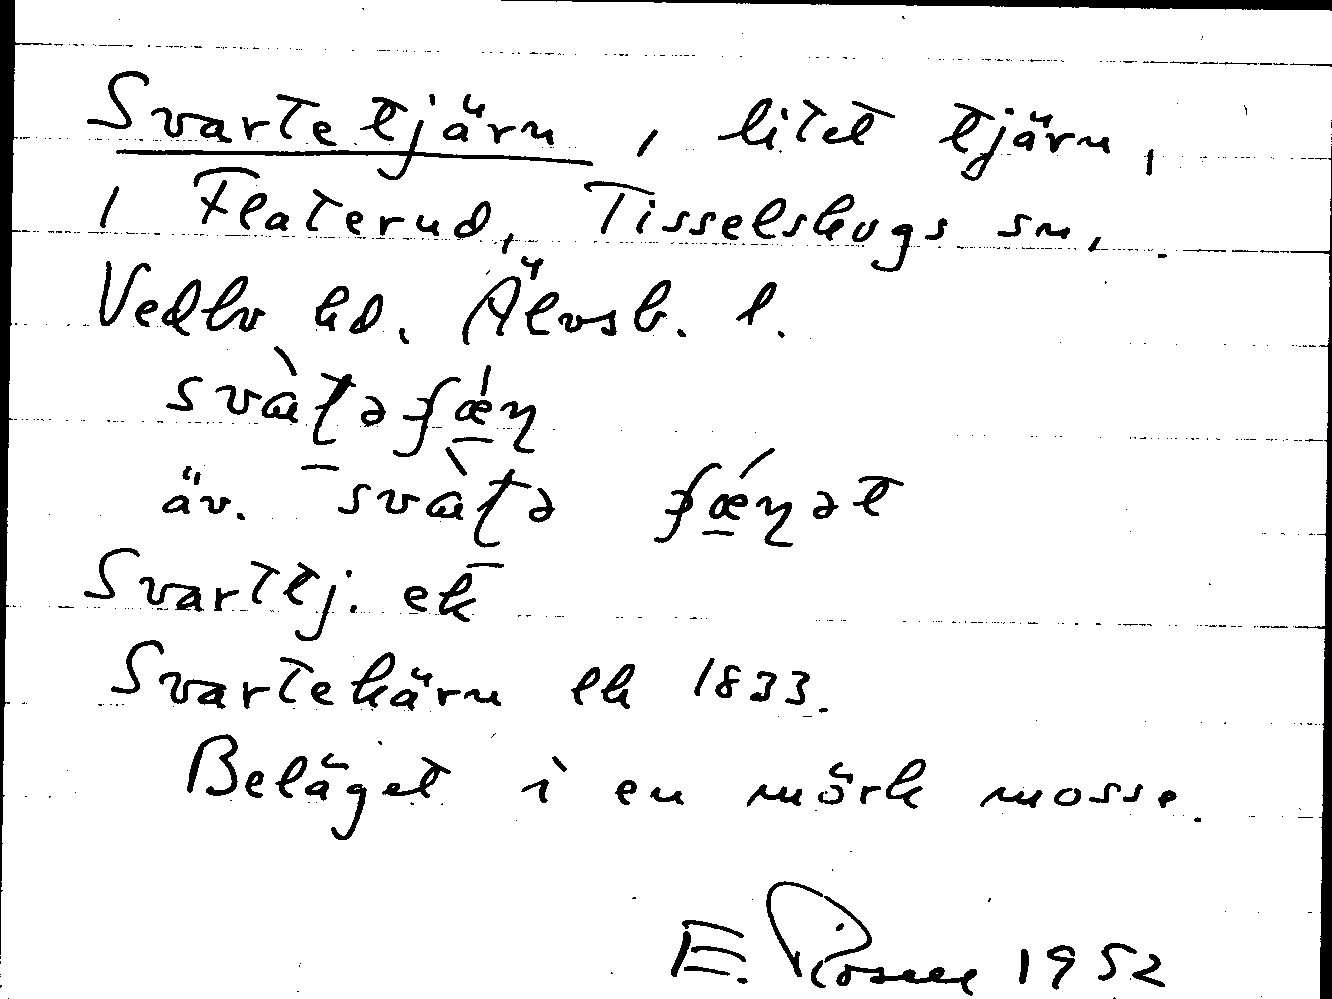 Svartetjärn, litet tjärn,
i Flaterud, Tisselskogs sn,
Vedbo hd. Älvsb. l.
äv.
Svarttj. ek
Svartekärn lh 1833.
Beläget i en mörk mosse.
E. Rosell 1952